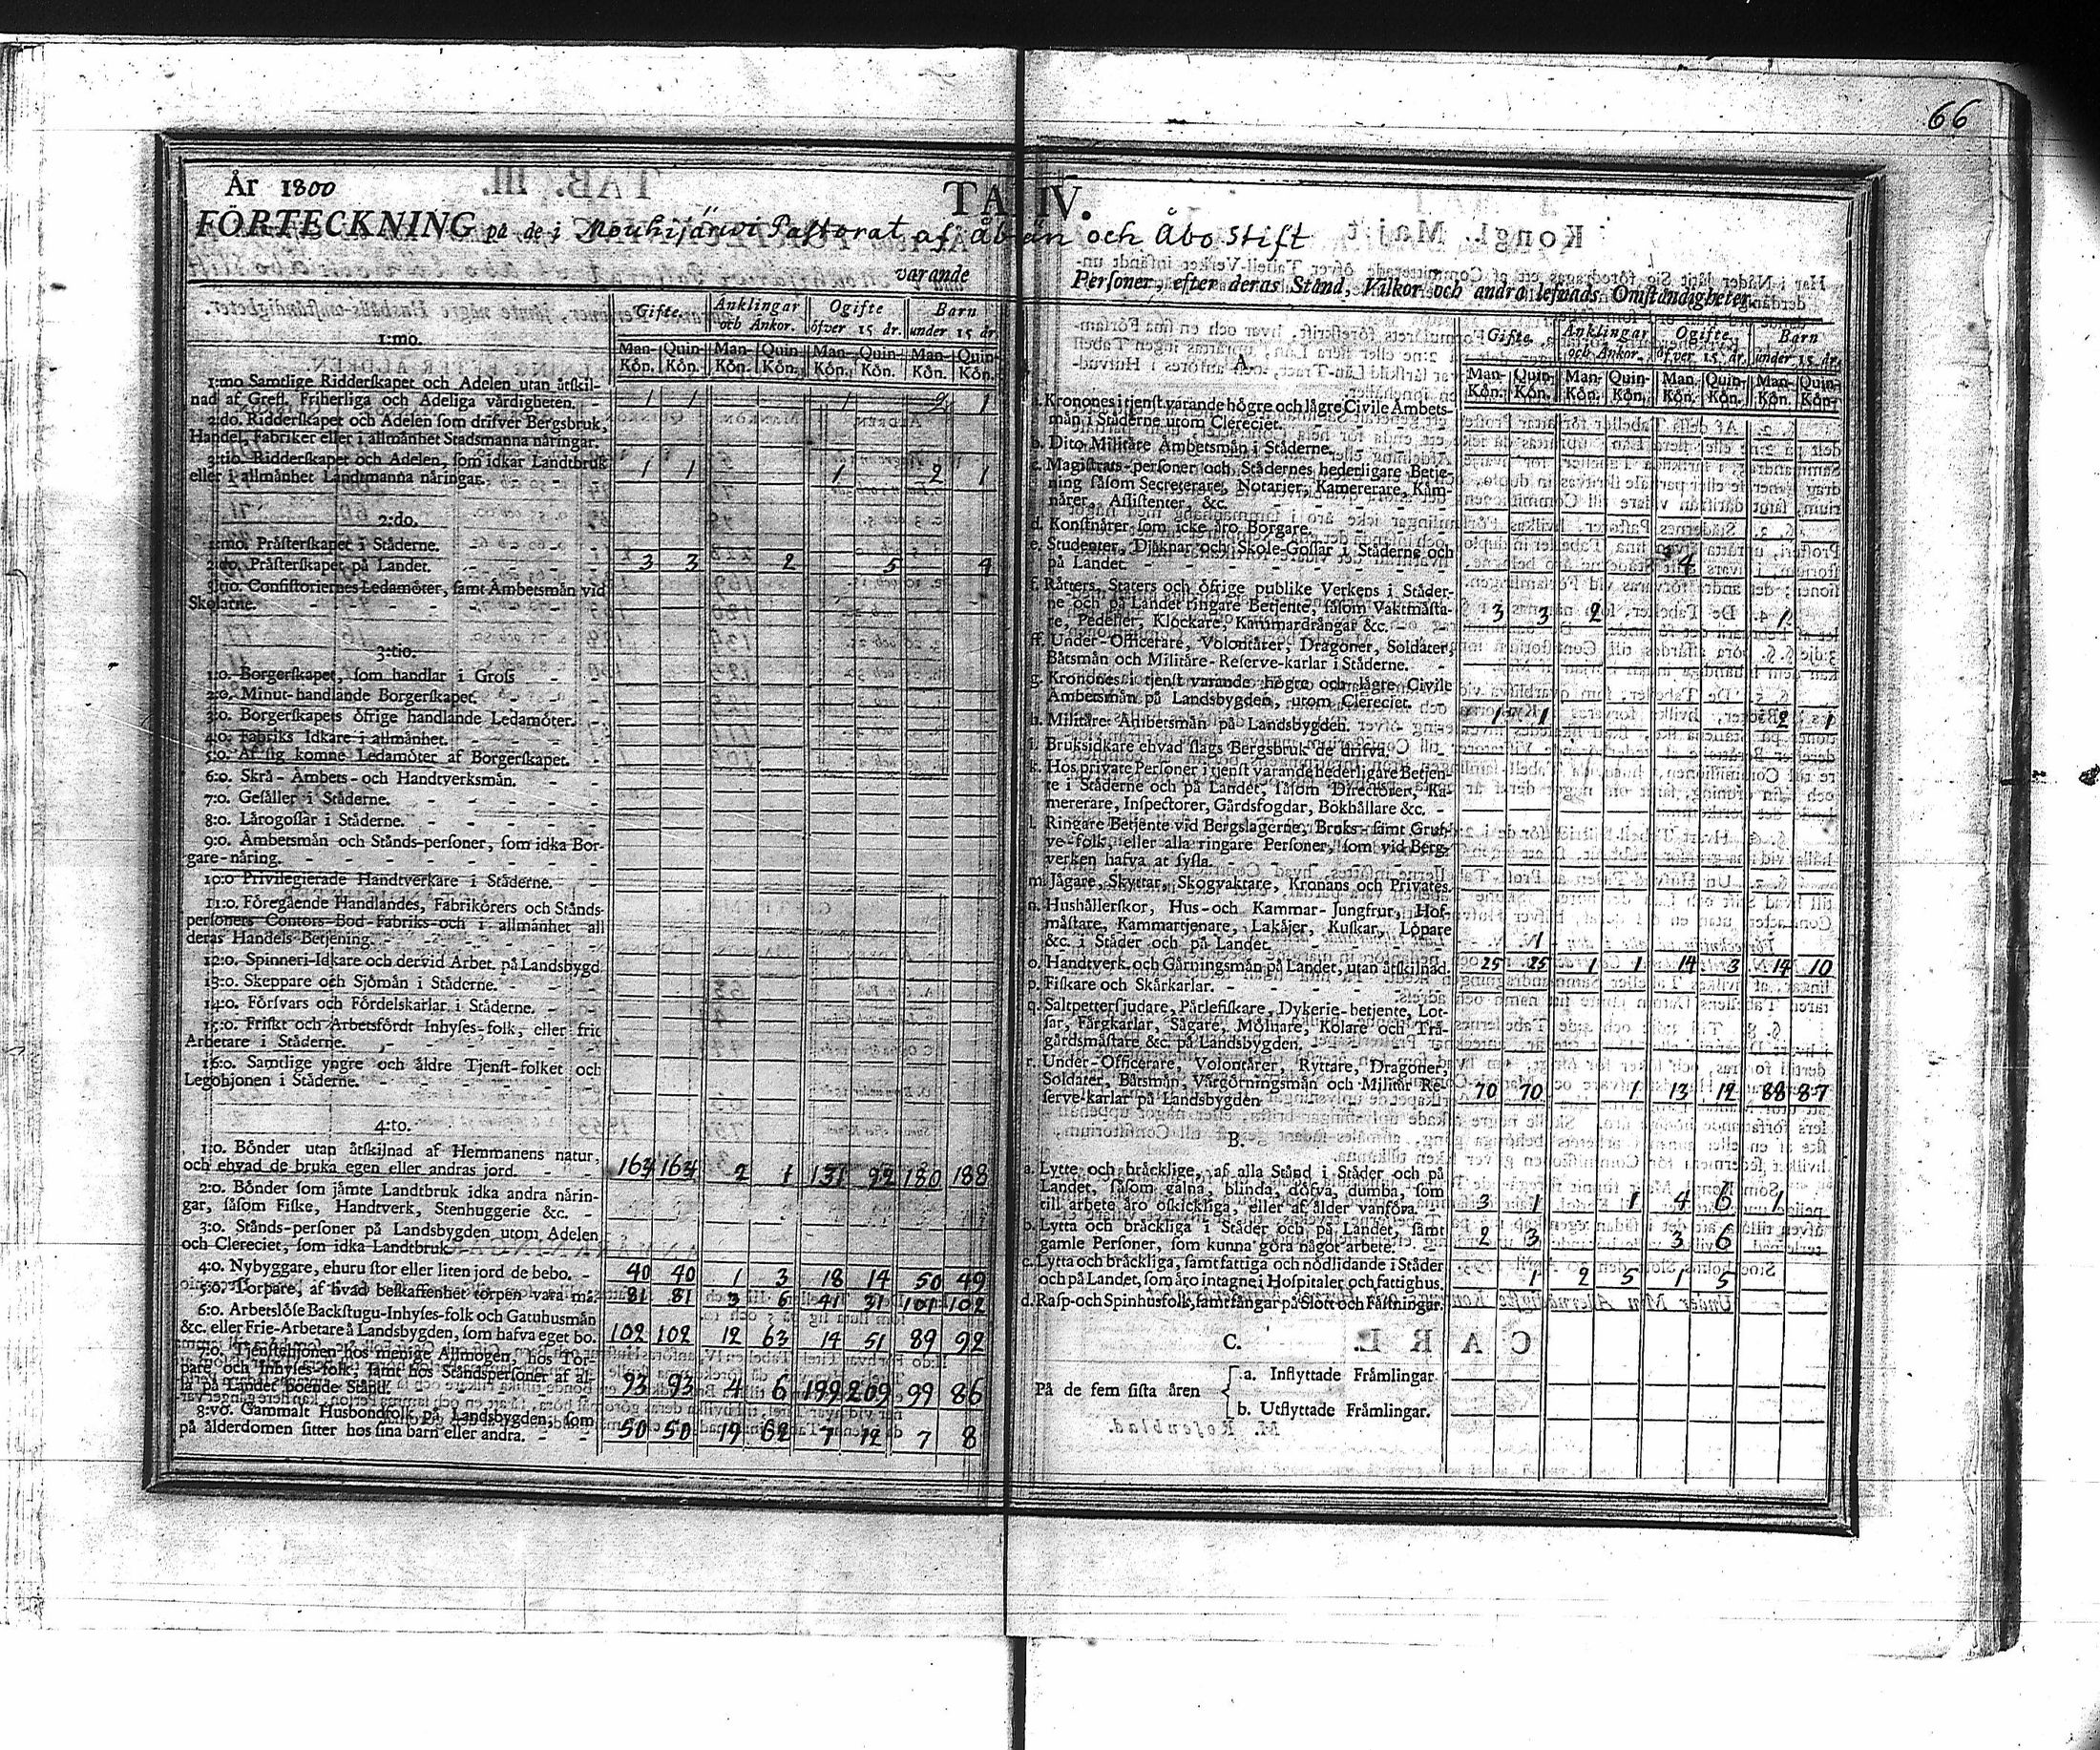 66
År 1800
TAB. IV.
FÖRTECKNING på de i Mouhijärwi Pastorat af Åbo Län och Åbo Stift
varande
Personer, efter deras Stånd, Vilkor och andra lefnads Omständigheter.
Gifte. Änklingar och Änkor. Ogifte öfver 15 år. Barn under 15 år.
Man-Kön. Quin-Kön. Man-Kön. Quin-Kön. Man-Kön. Quin-Kön. Man-Kön. Quin-Kön.
1:mo.
1:mo Samtlige Ridderskapet och Adelen utan åtskil-
nad af Grefl. Friherliga och Adeliga värdigheten. - 1 1 1 2 1
2:do. Ridderskapet och Adelen som drifver Bergsbruk,
Handel, Fabriker eller i allmänhet Stadsmanna näringar.
3:tio. Ridderskapet och Adelen, som idkar Landtbruk
eller i allmänhet Landtmanna näringar. 1 1 1 2 1
2:do.
1:mo. Prästerskapet i Städerne.
2:do. Prästerskapet på Landet. 3 3 2 5 4
3:tio. Consistoriernes Ledamöter, samt Ämbetsmän vid
Skolarne.
3:tio.
1:o. Borgerskapet, som handlar i Gross
2:o. Minut-handlande Borgerskapet.
3:o. Borgerskapets öfrige handlande Ledamöter.
4:o. Fabriks Idkare i allmänhet.
5:o. Af sig komne Ledamöter af Borgerskapet.
6:o. Skrå-Ämbets-och Handtverksmän.
7:o. Gesäller i Städerne.
8:o. Lärogossar i Städerne.
9:o. Ämbetsmän och Stånds-personer, som idka Bor-
gare-näring.
10:o Privilegierade Handtverkare i Städerne.
11:o. Föregående Handlandes, Fabrikörers och Stånds-
personers Contors-Bod-Fabriks-och i allmänhet all
deras Handels Betjening.
12:o. Spinneri-Idkare och dervid Arbet. på Landsbygd.
13:o. Skeppare och Sjömän i Städerne.
14:o. Försvars och Fördelskarlar i Städerne.
15:o. Friskt och Arbetsfördt Inhyses-folk, eller frie
Arbetare i Städerne.
16:o. Samtlige yngre och äldre Tjenst-folket och
Legohjonen i Städerne.
4:to.
1:o. Bönder utan åtskilnad af Hemmanens natur,
och ehvad de bruka egen eller andras jord. 163 163 2 1 131 92 180 188
2:o. Bönder som jämte Landtbruk idka andra närin-
gar, såsom Fiske, Handtverk, Stenhuggerie &c.
3:o. Stånds-personer på Landsbygden utom Adelen
och Clereciet, som idka Landtbruk.
4:o. Nybyggare, ehuru stor eller liten jord de bebo. 40 40 1 3 18 14 50 49
5:o. Torpare, af hvad beskaffenhet torpen vara må. 81 81 3 6 41 31 101 102
6:o. Arbetslöse Backstugu-Inhyses-folk och Gatuhusmän
&c. eller Frie-Arbetare å Landsbygden, som hafva eget bo. 102 102 12 63 14 51 89 92
7:o. Tjenstehjonen hos menige Allmogen, hos Tor-
pare och Inhyses-folk, samt hos Ståndspersoner af al-
la på Landet boende Stånd. 93 93 4 6 199 209 99 86
8:vo. Gammalt Husbondfolk på Landsbygden, som
på ålderdomen sitter hos sina barn eller andra. 50 50 19 62 7 12 7 8
Gifte. Änklingar och Änkor. Ogifte öfver 15 år. Barn under 15 år.
Man-Kön. Quin-Kön. Man-Kön. Quin-Kön. Man-Kön. Quin-Kön. Man-Kön. Quin-Kön.
A.
a. Kronones i tjenst varande högre och lägre Civile Ämbets-
män i Städerne utom Clereciet.
b. Dito Militäre Ämbetsmän i Städerne.
c. Magistrats-personer och Städernes hederligare Betje-
ning såsom Secreterare, Notarier, Kamererare, Käm-
närer, Assistenter, &c.
d. Konstnärer som icke äro Borgare.
e. Studenter, Djäknar och Skole-Gossar i Städerne och
på Landet. 4
f. Rätters, Staters och öfrige publike Verkens i Städer-
ne och på Landet ringare Betjente, såsom Vaktmästa-
re, Pedeller, Klockare, Kammardrängar &c. 3 3 2 1
ff. Under-Officerare, Volontärer, Dragoner, Soldater,
Båtsmän och Militäre-Reserve-karlar i Städerne.
g. Kronones i tjenst varande högre och lägre Civile
Ämbetsmän på Landsbygden, utom Clereciet.
h. Militäre Ämbetsmän på Landsbygden. 1 1 2 1
i. Bruksidkare ehvad slags Bergsbruk de drifva.
k. Hos private Personer i tjenst varande hederligare Betjen-
te i Städerne och på Landet, såsom Directörer, Ka-
mererare, Inspectorer, Gårdsfogdar, Bokhållare &c.
l. Ringare Betjente vid Bergslagerne, Bruks-samt Gruf-
ve-folk, eller alla ringare Personer, som vid Berg-
verken hafva at syssla.
m. Jägare, Skyttar, Skogvaktare, Kronans och Privates.
n. Hushållerskor, Hus-och Kammar-Jungfrur, Hof-
mästare, Kammartjenare, Lakäjer, Kuskar, Löpare
&c. i Städer och på Landet. 1
o. Handtverk. och Gärningsmän på Landet, utan åtskilnad. 25 25 1 1 14 3 14 10
p. Fiskare och Skärkarlar.
q. Saltpettersjudare, Pärlefiskare, Dykerie-betjente, Lot-
sar, Färgkarlar, Sågare, Mölnare, Kolare och Trä-
gårdsmästare &c. på Landsbygden.
r. Under-Officerare, Volontärer, Ryttare, Dragoner,
Soldater, Båtsmän, Vargörningsmän och Militär Re-
serve-karlar på Landsbygden 70 70 1 13 12 88 87
B.
a. Lytte och bräcklige, af alla Stånd i Städer och på
Landet, såsom galna, blinda, döfva, dumba, som
till arbete äro oskickliga, eller af ålder vanföra. 3 1 1 4 6 1
b. Lytta och bräckliga i Städer och på Landet, samt
gamle Personer, som kunna göra något arbete. 2 3 3 6
c. Lytta och bräckliga, samt fattiga och nödlidande i Städer
och på Landet, som äro intagne i Hospitaler och fattighus. 1 2 5 1 5
d. Rasp-och Spinhusfolk, samt fångar på Slott och Fästningar.
C.
På de fem sista åren
a. Inflyttade Främlingar
b. Utflyttade Främlingar.